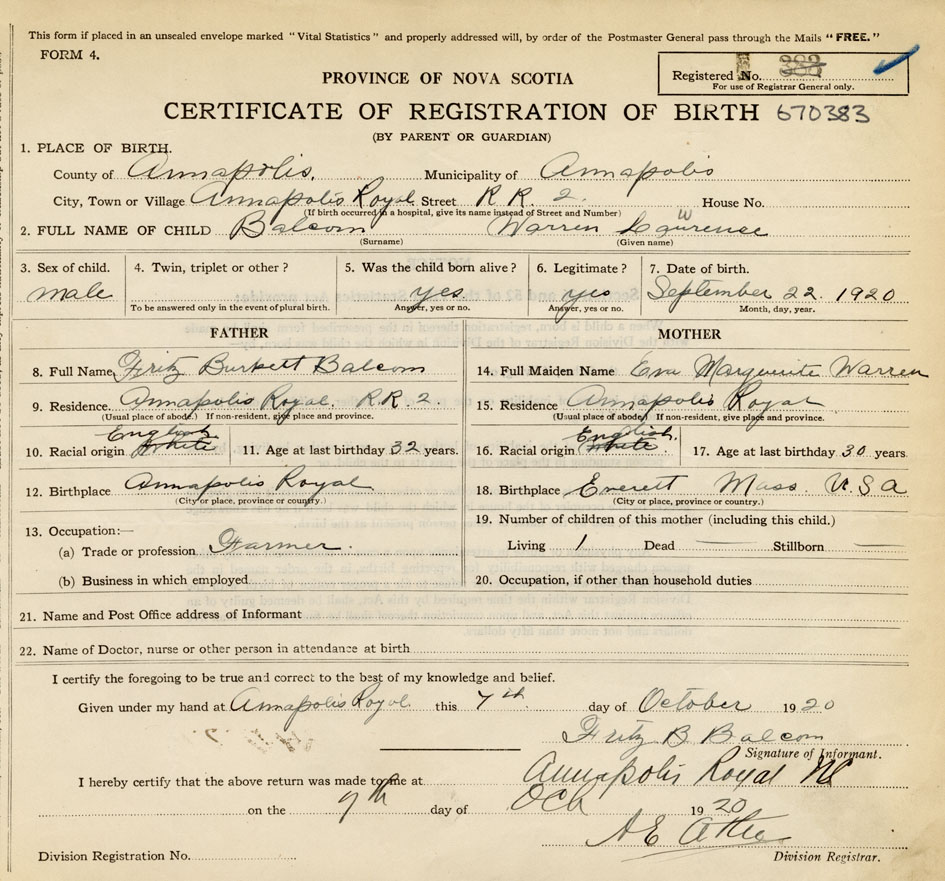 This form if placed in an unsealed envelope marked "Vital Statistics" and properly addressed will, by order of the Postmaster General pass through the Mails "FREE."
FORM 4.
PROVINCE OF NOVA SCOTIA
Registered No. 382
For use of Registrar General only.
CERTIFICATE OF REGISTRATION OF BIRTH 670383
(BY PARENT OR GUARDIAN)
1. PLACE OF BIRTH.
County of Annapolis. Municipality of Annapolis
City, Town or Village Annapolis Royal Street R R. 2. House No.
(If birth occurred in a hospital, give its name instead of Street and Number)
2. FULL NAME OF CHILD Balcom Warren Lawrence
(Surname) (Given name)
3. Sex of child. 4. Twin, triplet or other? 5. Was the child born alive? 6. Legitimate? 7. Date of birth.
male yes. yes September 22. 1920
To be answered only in the event of plural birth. Answer, yes or no. Answer, yes or no. Month, day, year.
FATHER MOTHER
8. Full Name Fritz Burkett Balcom 14. Full Maiden Name Eva Marguerite Warren
9. Residence. Annapolis Royal. R.R. 2 15. Residence Annapolis Royal
(Usual place of abode.) If non-resident, give place and province. (Usual place of abode) If non-resident, give place and province.
English. English.
10. Racial origin White 11. Age at last birthday 32 years. 16. Racial origin White. 17. Age at last birthday 30 years.
12. Birthplace Annapolis Royal 18. Birthplace Everett Mass. U.S.A
(City or place, province or country.) (City or place, province or country.)
13. Occupation:— 19. Number of children of this mother (including this child.)
(a) Trade or profession Farmer. Living 1 Dead — Stillborn —
(b) Business in which employed 20. Occupation, if other than household duties
21. Name and Post Office address of Informant
22. Name of Doctor, nurse or other person in attendance at birth
I certify the foregoing to be true and correct to the best of my knowledge and belief.
Given under my hand at Annapolis Royal this 7th day of October 1920
Fritz B Balcom
Signature of Informant.
I hereby certify that the above return was made to me at Annapolis Royal NS
on the 7th day of Oct 1920
A E
Division Registration No. Division Registrar.